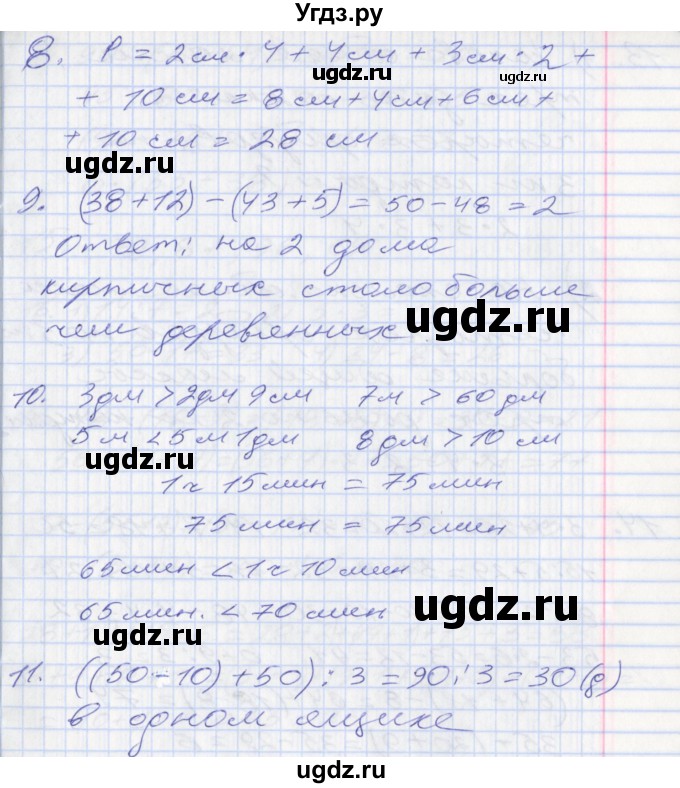 Угдз.ру
8. P = 2см · 4 + 4см + 3см · 2 +
+ 10 см = 8см + 4см + 6см +
+ 10 см = 28 см
9. (38 + 12) - (43 + 5) = 50 - 48 = 2
Ответ: на 2 дома
кирпичных стало больше
чем деревянных.
10. 3дм > 2дм 9см 7м > 60 дм
5м < 5м 1дм 8дм > 10 см
1ч 15мин = 75мин
75мин = 75мин
65мин < 1ч 10мин
65мин. < 70мин
11. ((50 - 10) + 50) : 3 = 90 : 3 = 30 (д)
в одном ящике
ugdz.ru
ugdz.ru
ugdz.ru
ugdz.ru
ugdz.ru
ugdz.ru
ugdz.ru
ugdz.ru
ugdz.ru